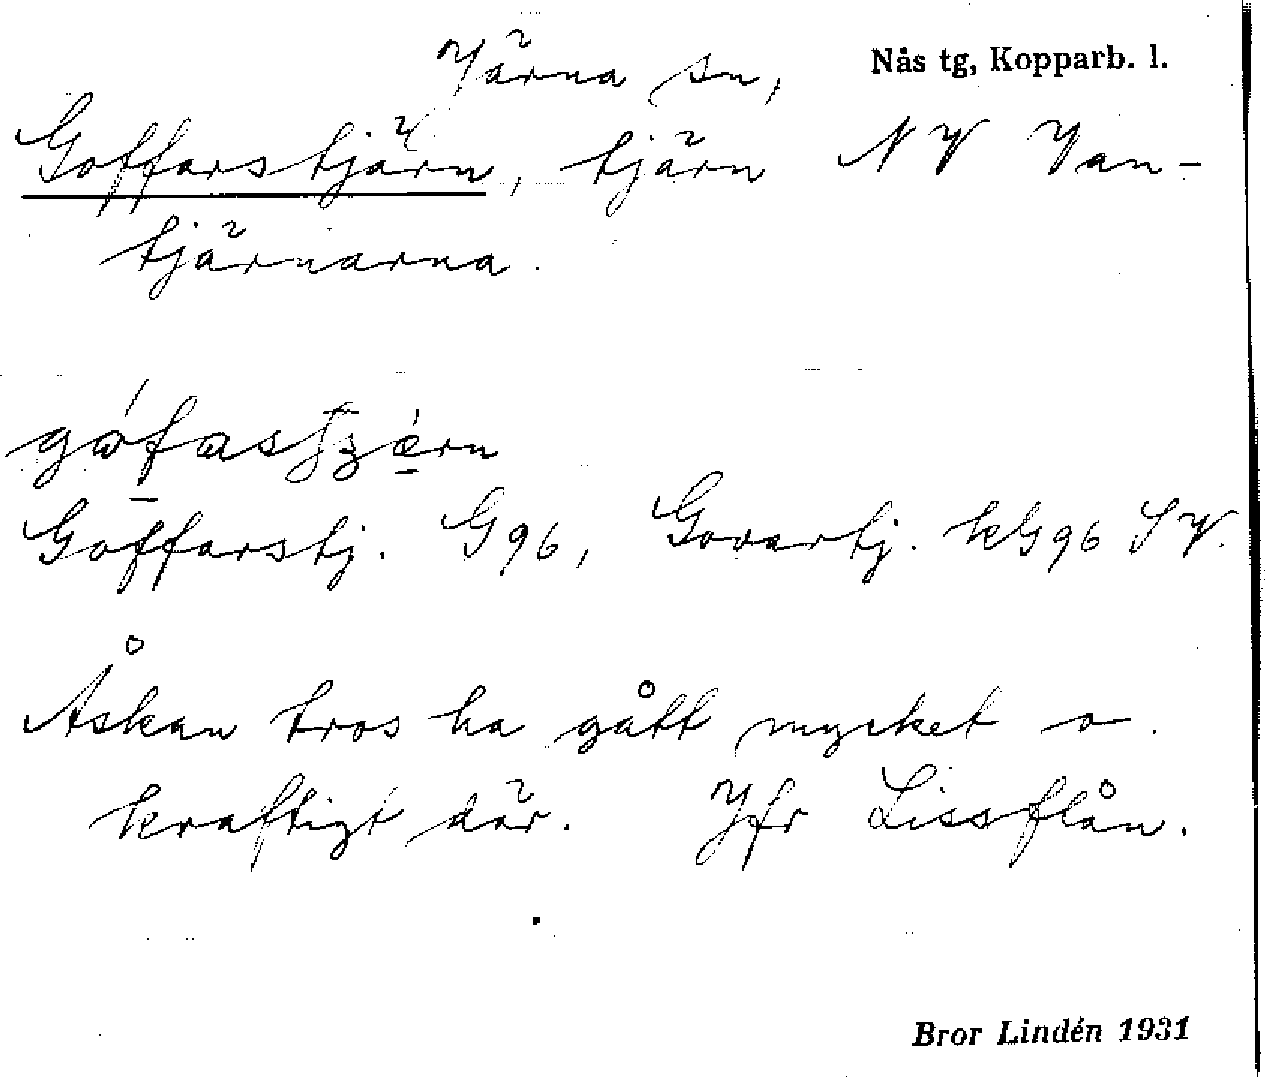 Järna sn, Nås tg, Kopparb. l.
Goffarstjärn, tjärn NV Jan-
tjärnarna.
Goffarstj. G96, Govartj. kG96 SV.
Åskan tros ha gått mycket o.
kraftigt där. Jfr Lissflån.
Bror Lindén 1931